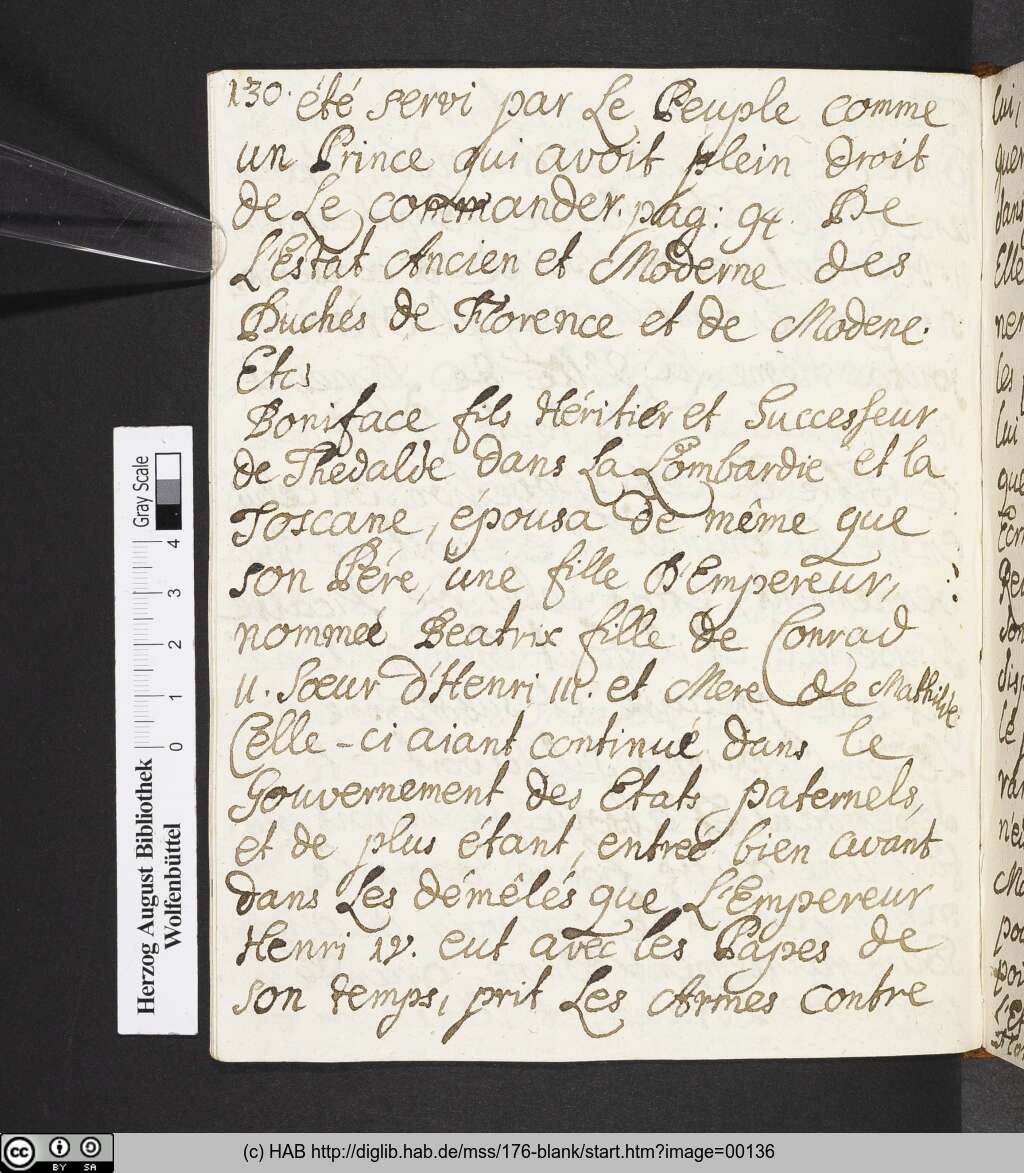 130. été servi par Le Peuple comme
un Prince qui avoit plein droit
de Le commander. pag: 94. De
L'Estat Ancien et Moderne des
Duchés de Florence et de Modene.
Etcs
Boniface fils Héritiér et Successeur
de Thedalde dans La Lombardie et la
Toscane, épousa de même que
son Pére, une fille D'Empereur,
nommeé Beatrix fille de Conrad
II. Sœur d'Henri III. et Mere de Mathilde
Celle-ci aiant continué dans le
Gouvernement des Etats paternels,
et de plus étant, entreé bien avant
dans Les démêlés que L'Empereur
Henri IV. eut avec les Papes de
son temps, prit Les Armes contre
Herzog August Bibliothek
Wolfenbüttel
Gray Scale
0 1 2 3 4
lui,
les
lui
que
le
cc BY SA
(c) HAB http://diglib.hab.de/mss/176-blank/start.htm?image=00136